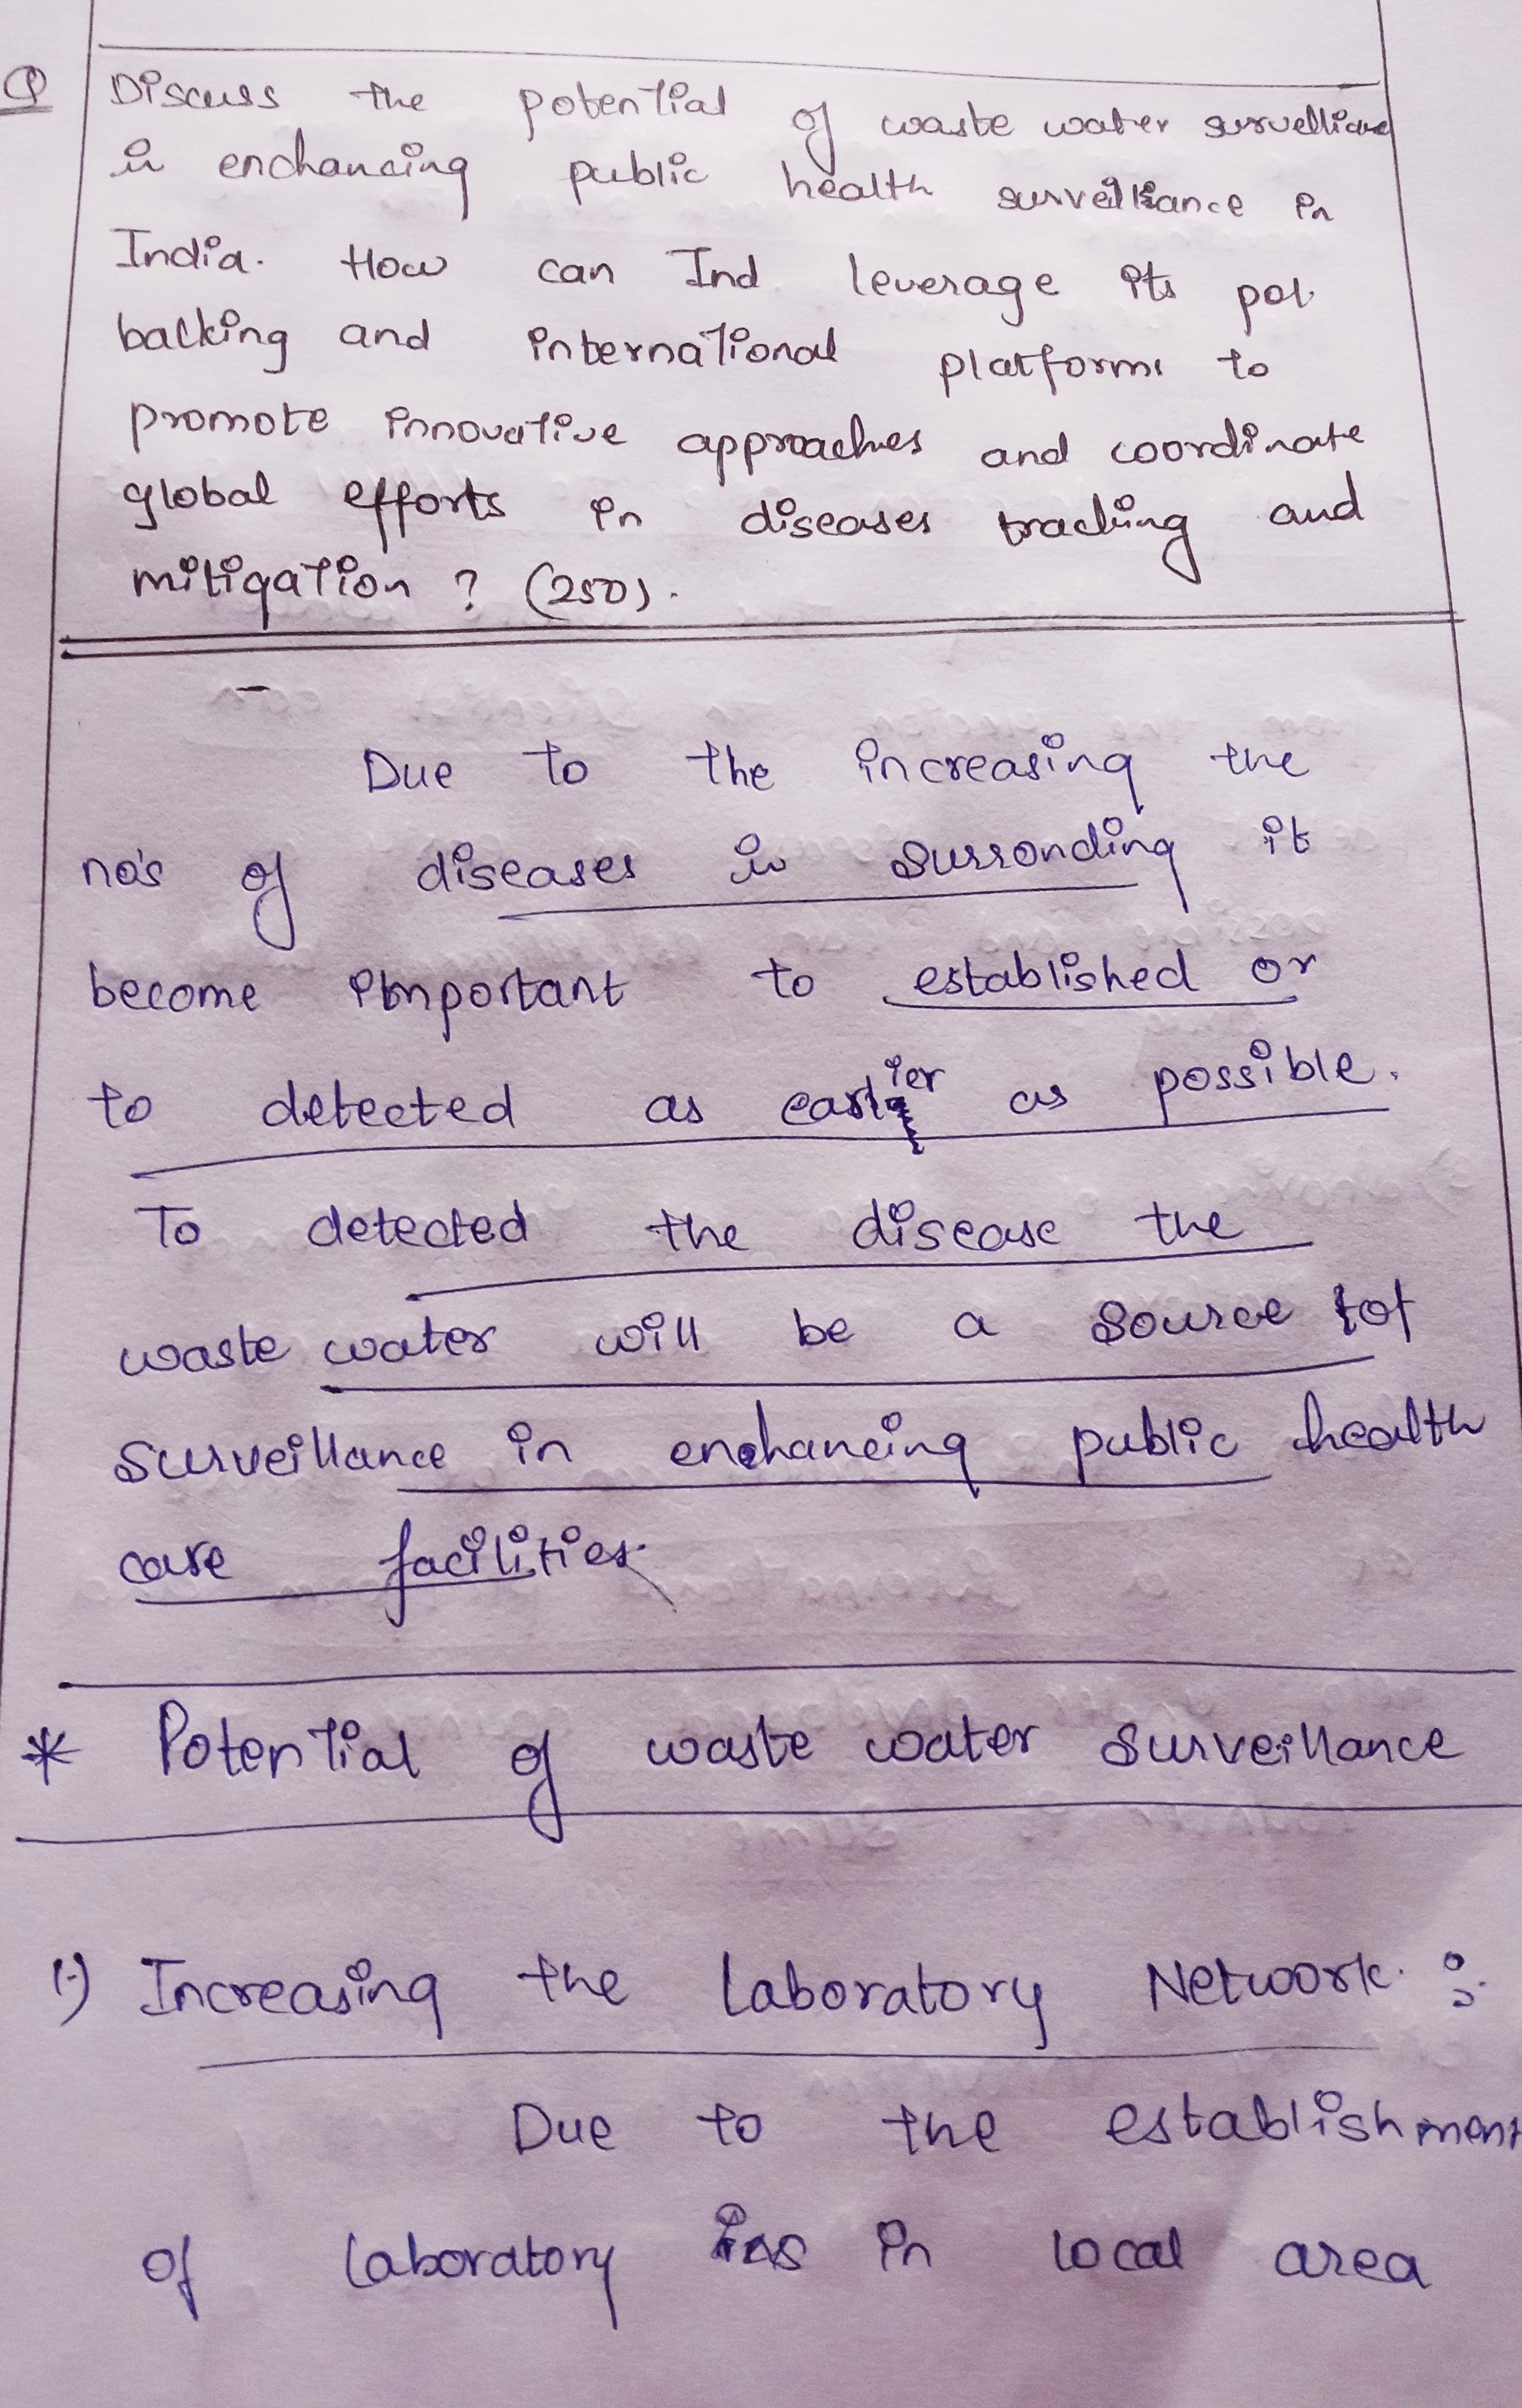 Q Discuss the potential of waste water survelliane
in enchancing public health surveillance in
India. How can Ind leverage its pol.
backing and international platforms to
promote innovative approaches and coordinate
global efforts in diseases tracking and
mitigation ? (250).
Due to the increasing the
no's of diseases in surronding it
become important to established or
to detected as earlier as possible.
To detected the disease the
waste water will be a source of
surveillance in enchancing public health
care facilities.
* Potential of waste water surveillance
1.) Increasing the Laboratory Network. :
Due to the establishment
of laboratory in local area